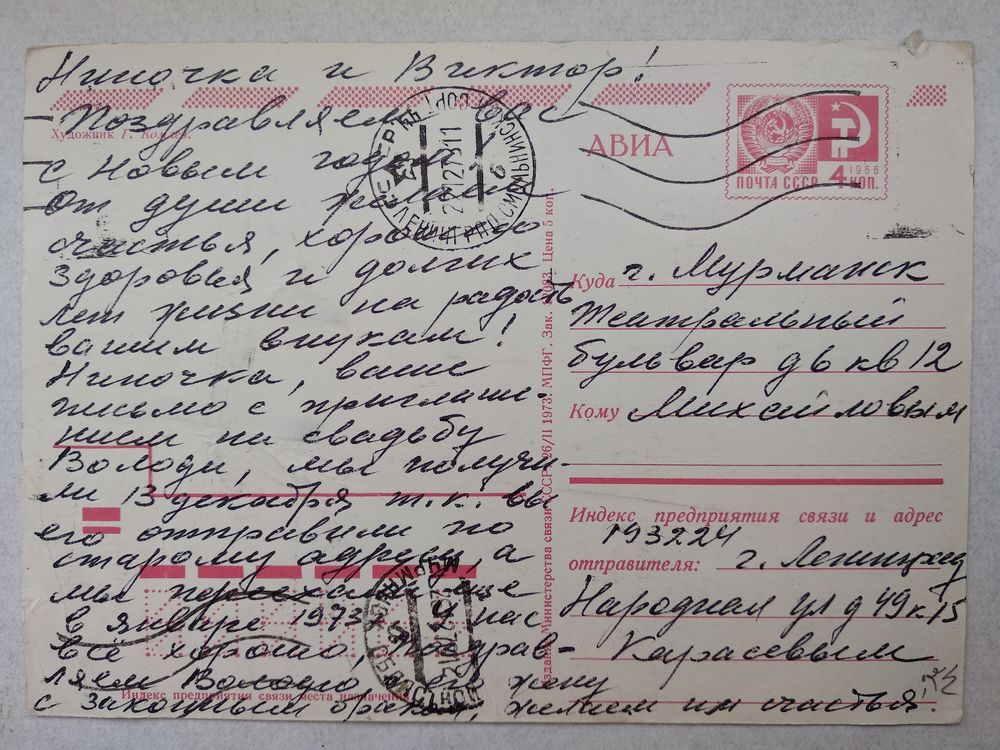 Ниночка и Виктор!
Поздравляем вас
Художник Г. Комлев.
с Новым годом!
от души желаем
счастья, хорошего
здоровья, и долгих
лет жизни на радость
вашим внукам!
Ниночка, ваше
письмо с приглаше-
нием на свадьбу
Володи, мы получи-
ли 13 декабря т.к. вы
его отправили по
старому адресу, а
мы переехали еще
в январе 1973г. У нас
все хорошо, поздрав-
ляем Володю и жену
Индекс предприятия связи места назначения
с законным браком, желаем им счастья.
АВИА
ПОЧТА СССР
1966
4 КОП.
ЛЕНИНГРАД
СМОЛЬНИНСКОЕ
Издание Министерства связи СССР. 26/II 1973. МПФГ. Зак. Цена 5 коп.
Куда г. Мурманск
Театральный
бульвар д 6 кв 12
Кому Михайловым
Индекс предприятия связи и адрес
193224
отправителя: г. Ленинград
Народная ул д 49 к. 15
Карасевым
МУРМАНСК